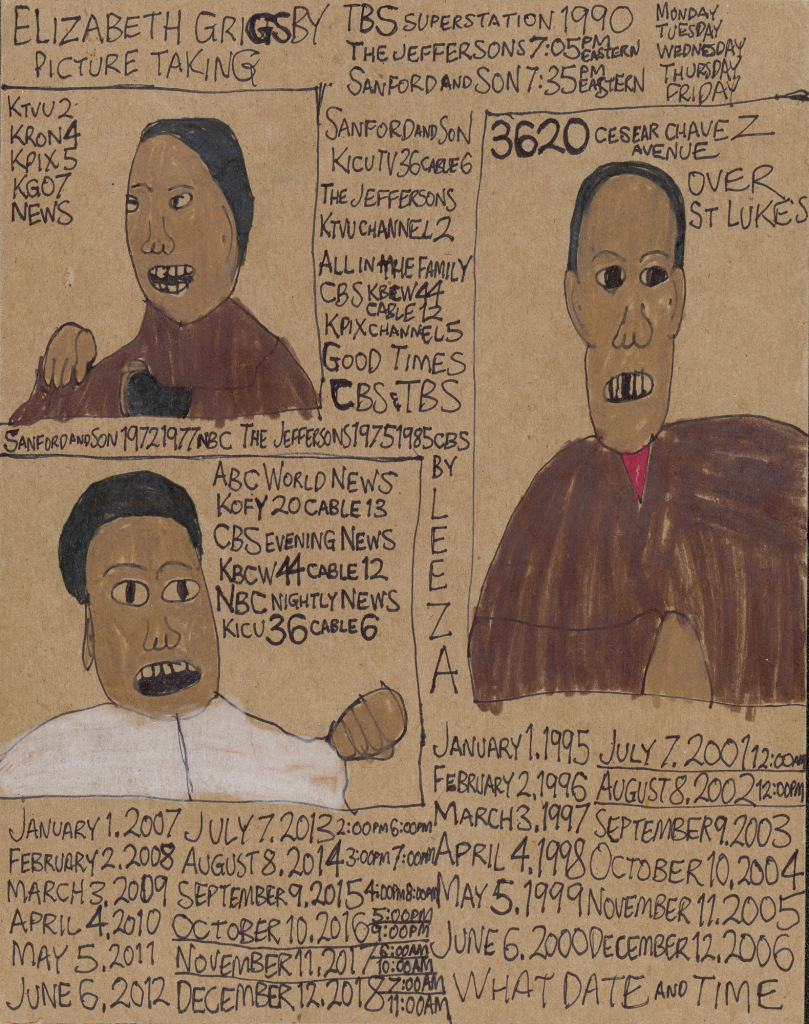 ELIZABETH GRIGSBY
PICTURE TAKING
TBS SUPERSTATION 1990
THE JEFFERSONS 7:05 PM EASTERN
SANFORD AND SON 7:35 PM EASTERN
MONDAY
TUESDAY
WEDNESDAY
THURSDAY
FRIDAY
KTVU 2
KRON 4
KPIX 5
KGO 7
NEWS
SANFORD AND SON
KICU TV 36 CABLE 6
THE JEFFERSONS
KTVU CHANNEL 2
ALL IN THE FAMILY
CBS KBCW 44
CABLE 12
KPIX CHANNEL 5
GOOD TIMES
CBS & TBS
3620 CESEAR CHAVEZ
AVENUE
OVER
ST LUKES
SANFORD AND SON 1972 1977 NBC THE JEFFERSONS 1975 1985 CBS
BY
LEEZA
ABC WORLD NEWS
KOFY 20 CABLE 13
CBS EVENING NEWS
KBCW 44 CABLE 12
NBC NIGHTLY NEWS
KICU 36 CABLE 6
JANUARY 1.1995 JULY 7.2001 12:00AM
FEBRUARY 2.1996 AUGUST 8.2002 12:00PM
MARCH 3.1997 SEPTEMBER 9.2003
APRIL 4.1998 OCTOBER 10.2004
MAY 5.1999 NOVEMBER 11.2005
JUNE 6.2000 DECEMBER 12.2006
JANUARY 1.2007 JULY 7.2013 2:00PM 6:00PM
FEBRUARY 2.2008 AUGUST 8.2014 3:00PM 7:00PM
MARCH 3.2009 SEPTEMBER 9.2015 4:00PM 8:00PM
APRIL 4.2010 OCTOBER 10.2016 5:00PM 9:00PM
MAY 5.2011 NOVEMBER 11.2017 6:00AM 10:00AM
JUNE 6.2012 DECEMBER 12.2018 7:00AM 11:00AM
WHAT DATE AND TIME